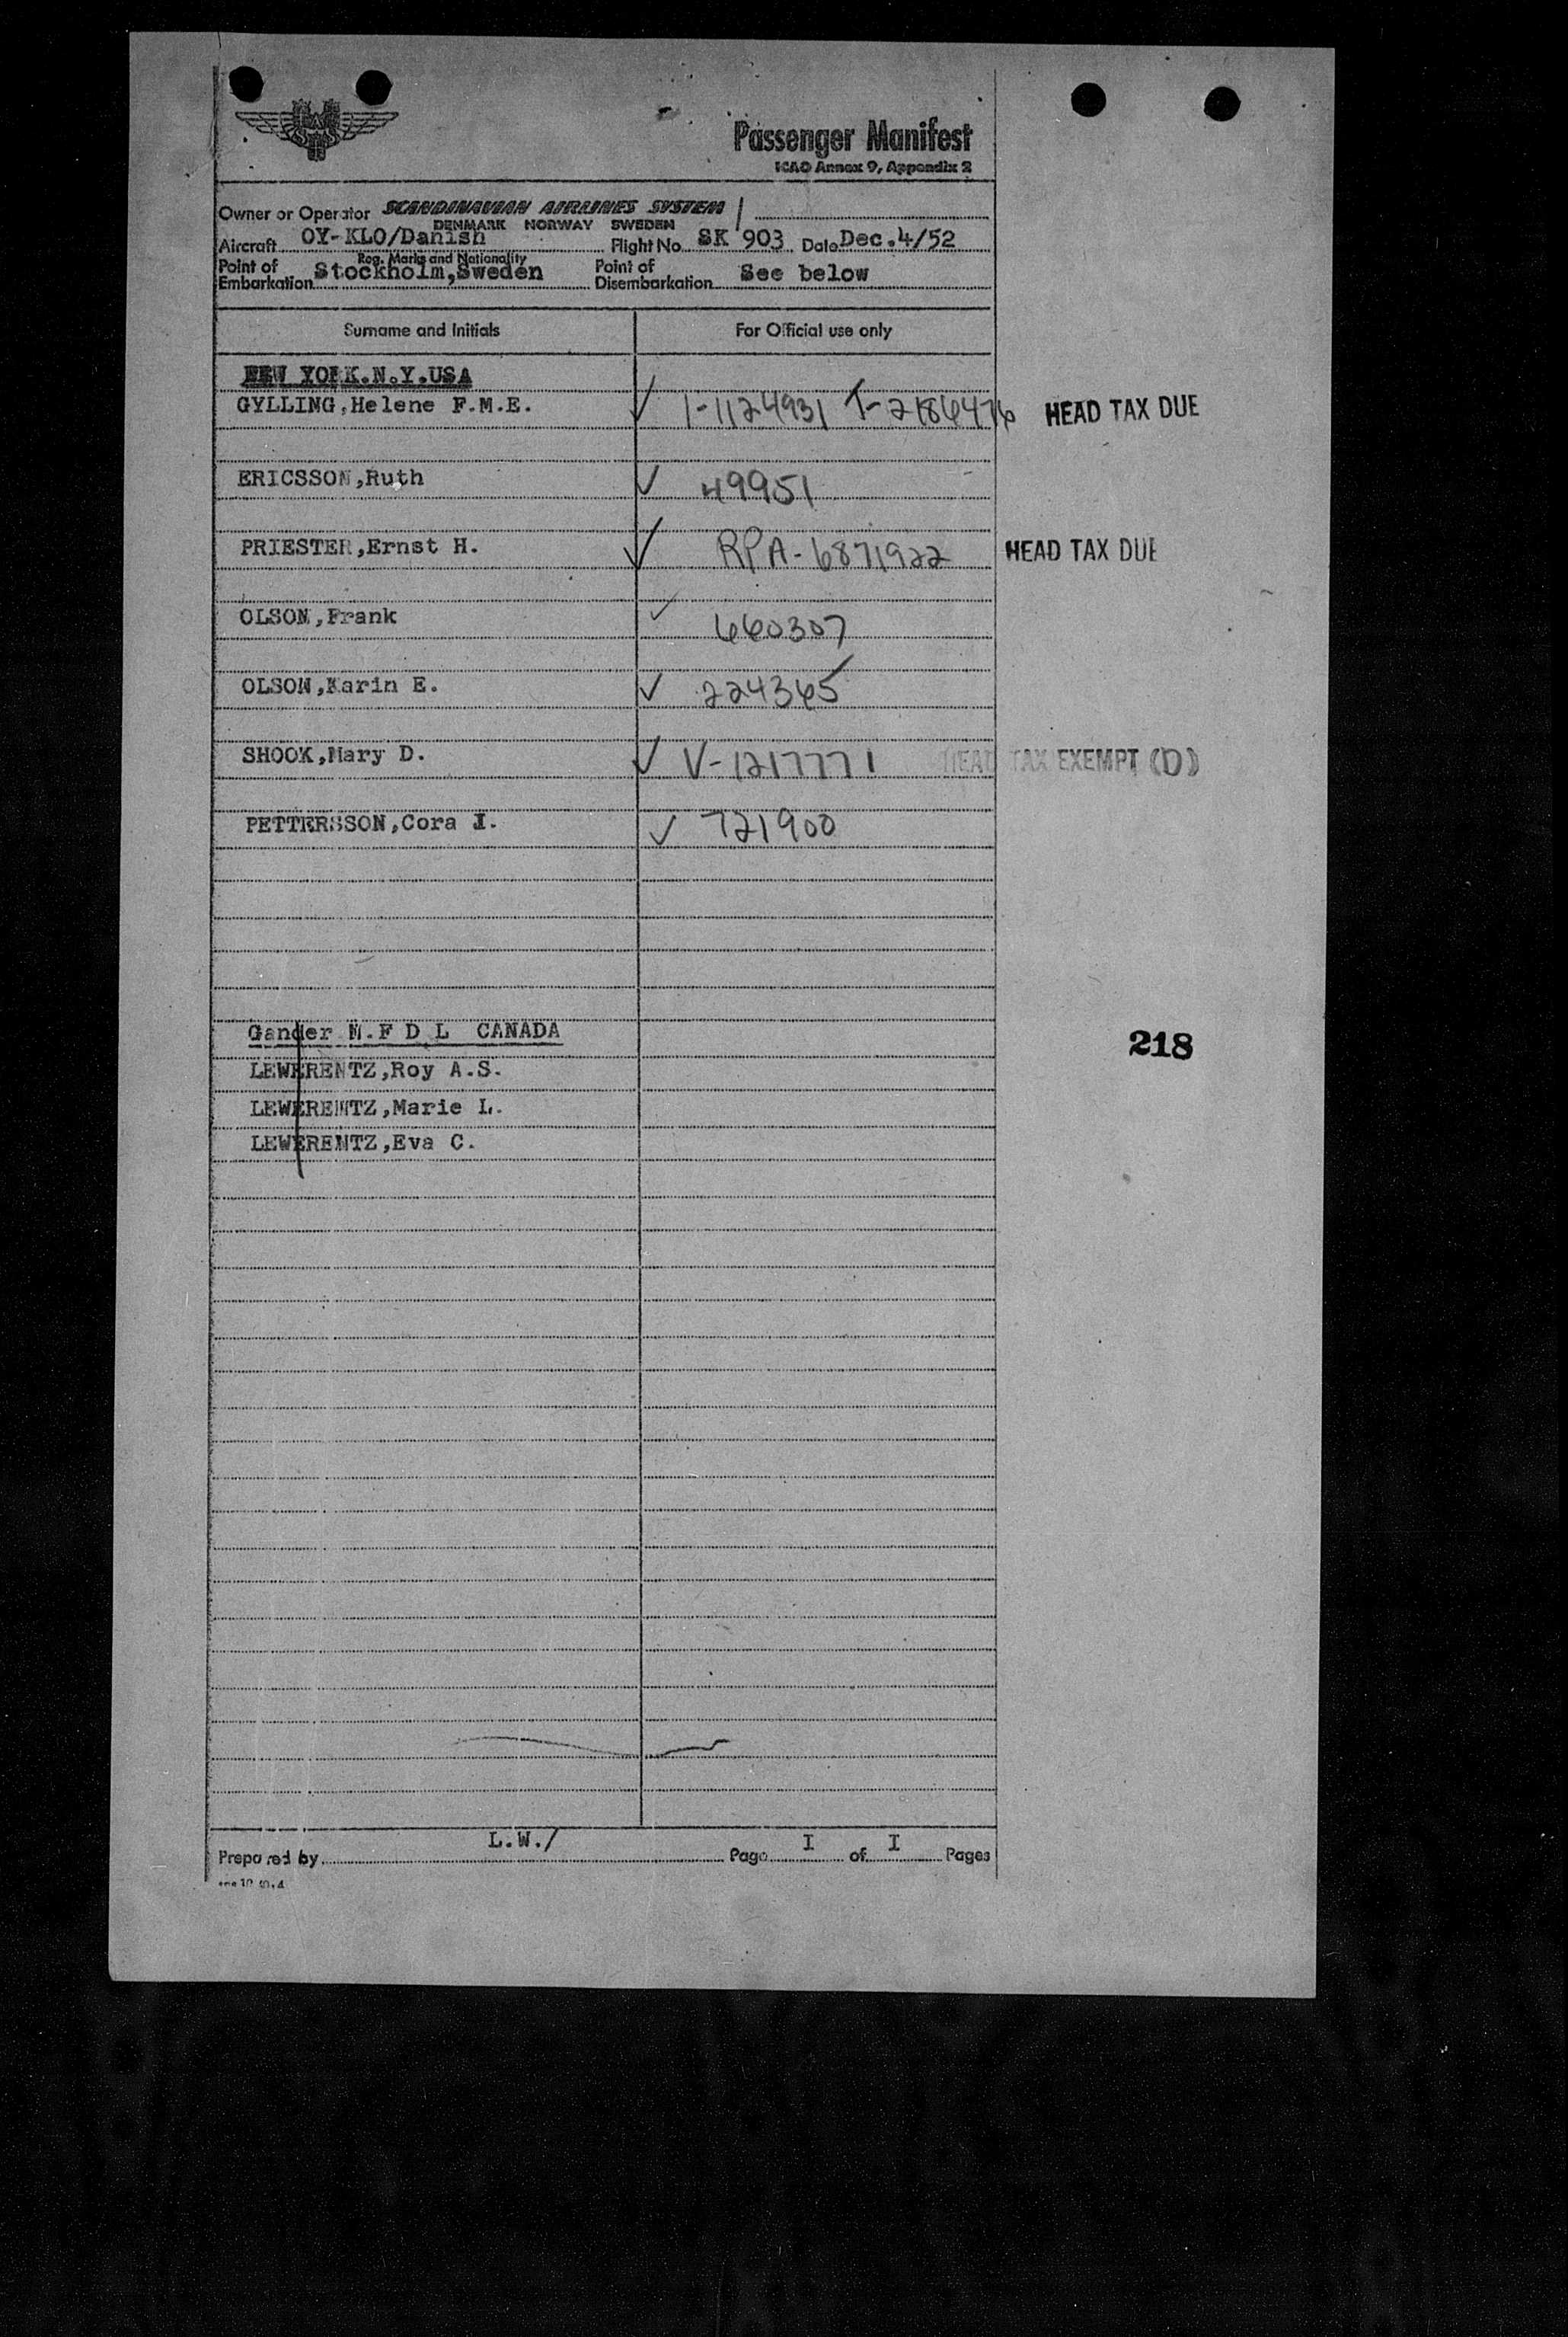 Passenger Manifest
ICAO Annex 9, Appendix 2
Owner or Operator SCANDINAVIAN AIRLINES SYSTEM
DENMARK NORWAY SWEDEN
Aircraft OY-KLO/Danish Flight No. SK 903 Date Dec.4/52
Reg. Marks and Nationality
Point of Embarkation Stockholm,Sweden Point of Disembarkation See below
Surname and Initials For Official use only
NEW YORK.N.Y.USA
GYLLING,Helene F.M.E. ✓ I-1124931 T-2186476 HEAD TAX DUE
ERICSSON,Ruth ✓ 49951
PRIESTER,Ernst H. ✓ RPA-6871922 HEAD TAX DUE
OLSON,Frank ✓ 660307
OLSON,Karin E. ✓ 224365
SHOOK,Mary D. ✓ V-1217771 HEAD TAX EXEMPT (D)
PETTERSSON,Cora I. ✓ 721900
Gander N.F D L CANADA
218
LEWERENTZ,Roy A.S.
LEWERENTZ,Marie L.
LEWERENTZ,Eva C.
Prepared by L.W./ Page I of I Pages